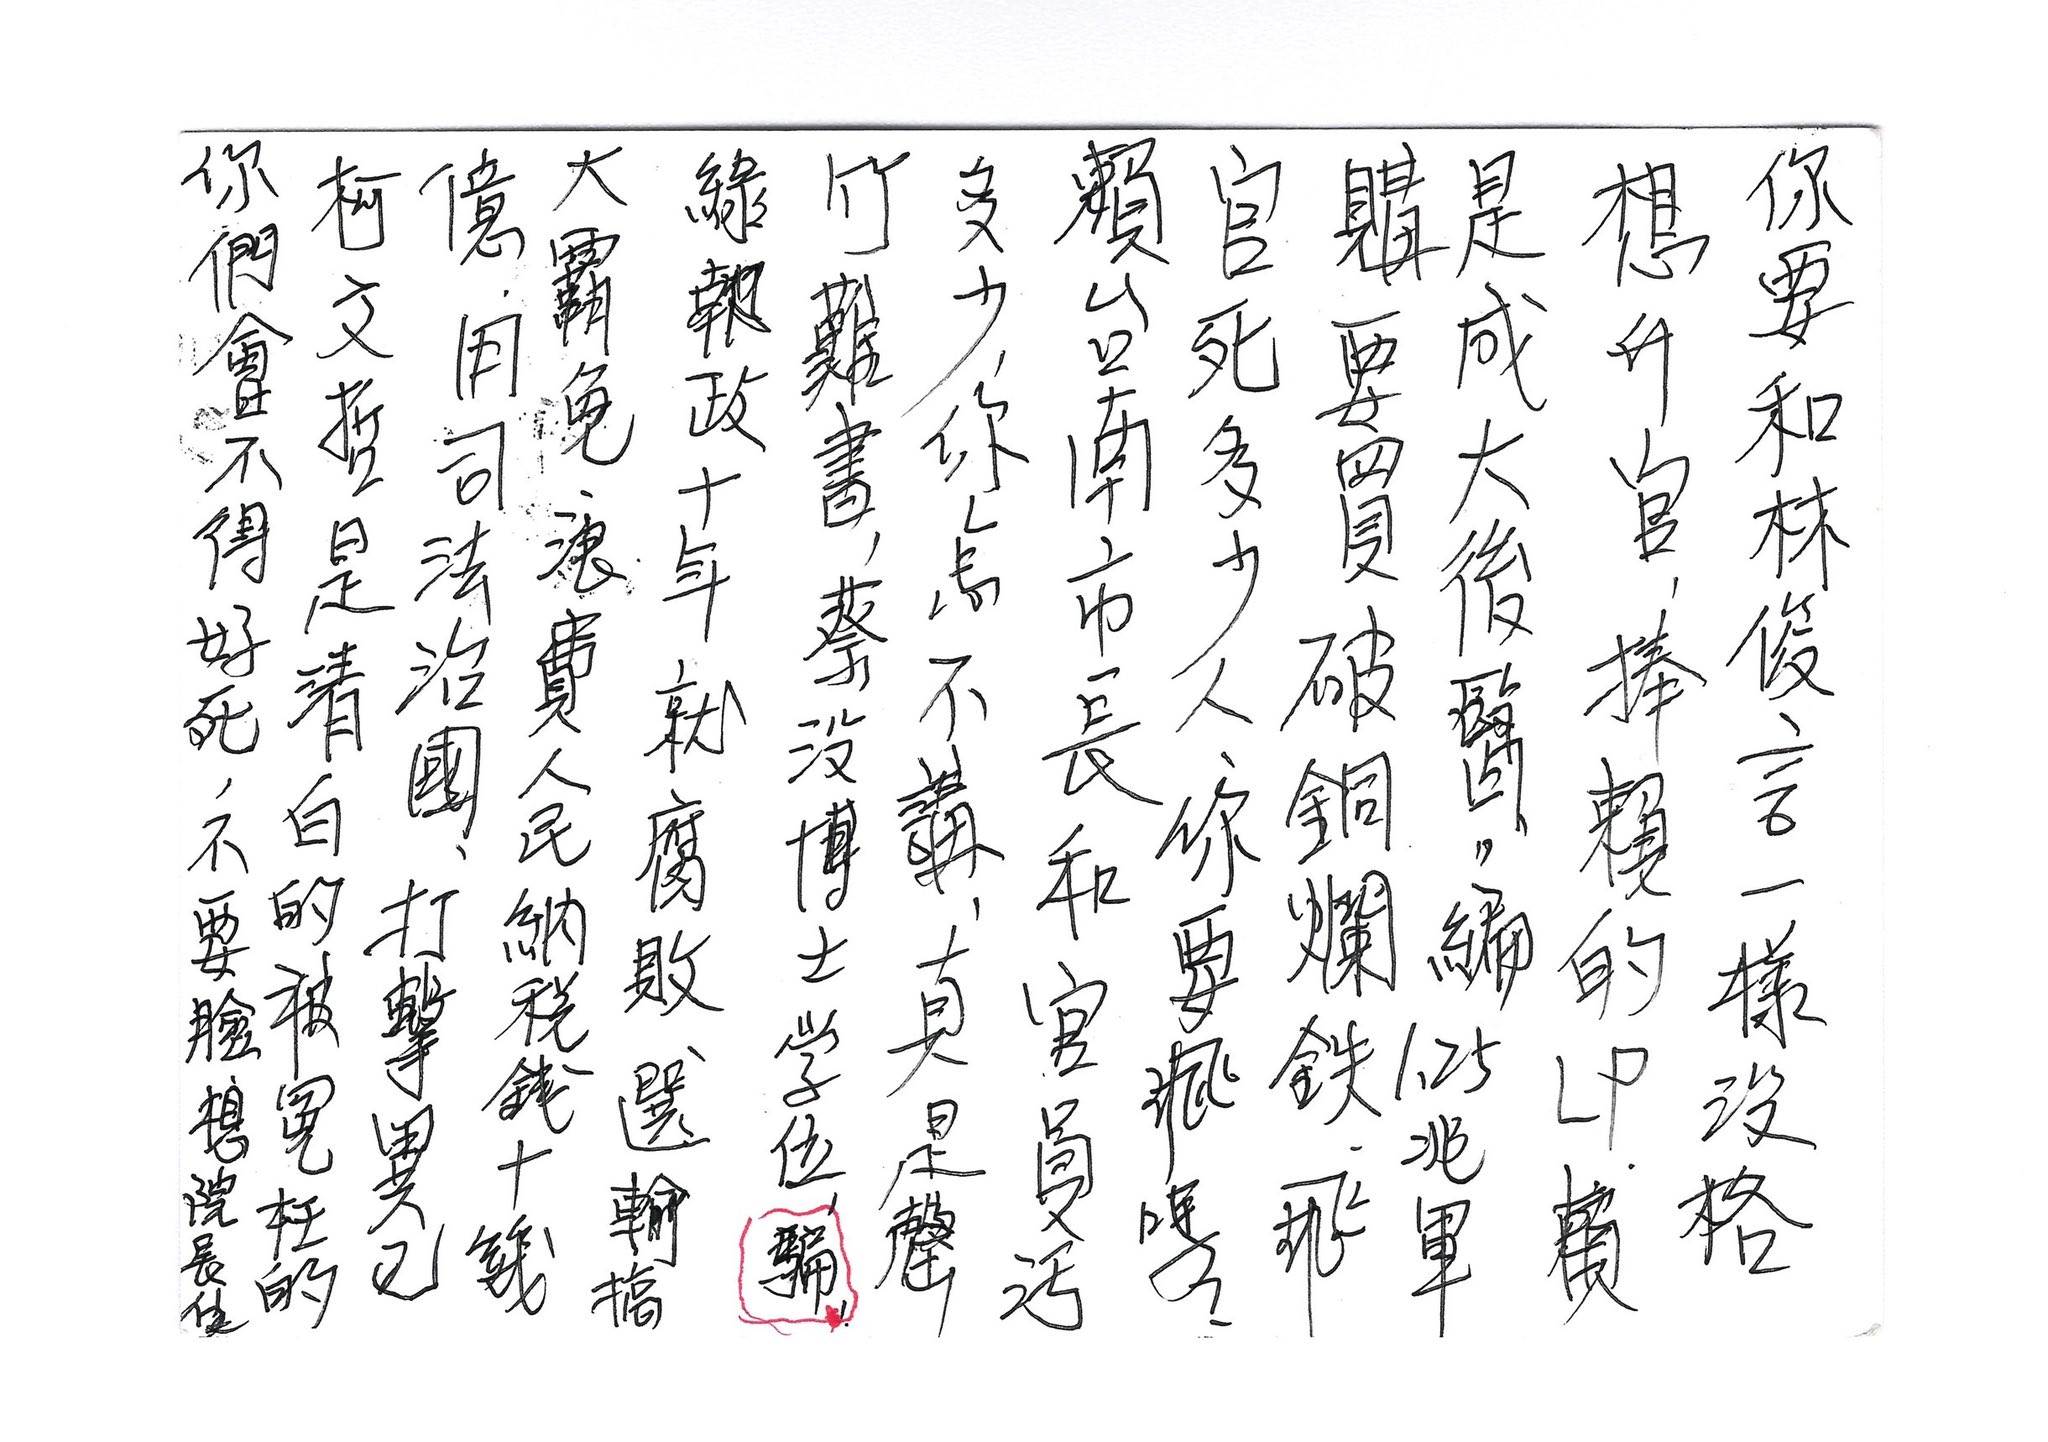 你要和林俊言一樣沒格
想升官，捧賴的LP．賴
是成大後醫，〞編1.25兆軍
購要買破銅爛鉄．飛
官死多少人你要飛嗎？
賴台南市長和官員污
多少，你為不講，真是罄
竹難書，蔡沒博士学位，騙！
綠執政十年就腐敗、選輸搞
大霸免、浪費人民納稅錢十幾
億．用司法治國、打擊異己
柯文哲是清白的被冤枉的
你們會不得好死，不要臉總院長位